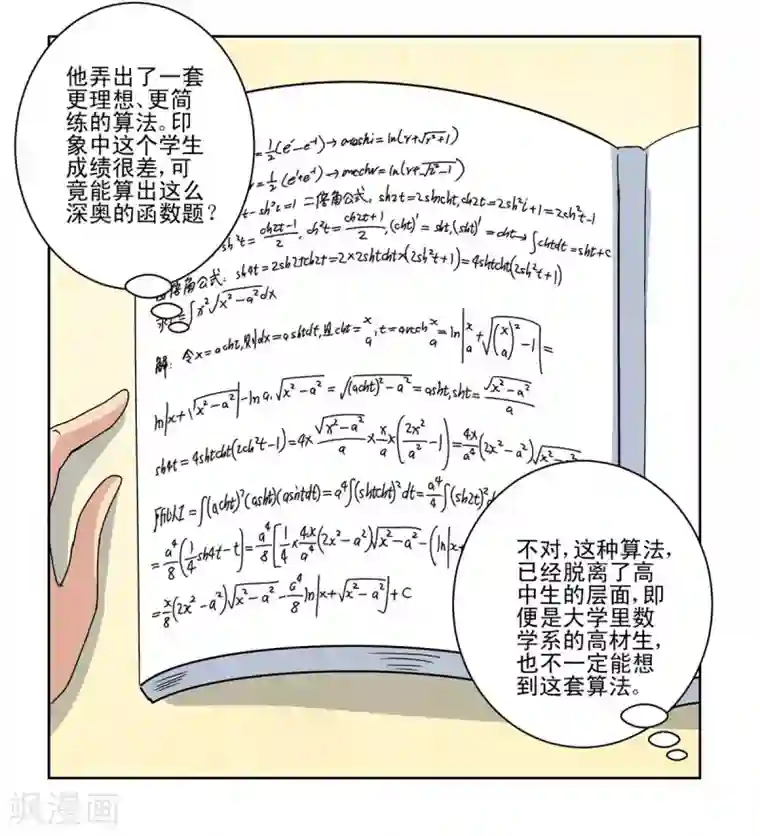 他弄出了一套
更理想、更简
练的算法。印
象中这个学生
成绩很差,可
竟能算出这么
深奥的函数题?
=½(eᵗ-e⁻ᵗ)→arcshi=ln(r+√r²+1)
=½(eᵗ+e⁻ᵗ)→
-sh²t=1 二倍角公式:sh2t=2shtcht,ch2t=2sh²t+1=2ch²t-1
sh²t=(ch2t-1)/2, ch²t=(ch2t+1)/2, (cht)'=sht,(sht)'=cht→∫chtdt=sht+c
倍角公式:sh4t=2sh2tch2t=2×2shtcht×(2sh²t+1)=4shtcht(2sh²t+1)
=∫x²√x²-a²dx
解:令x=acht,则dx=ashtdt,且cht=x/a,t=arcch x/a=ln|x/a+√(x/a)²-1|=
ln|x+√x²-a²|-lna,√x²-a²=√(acht)²-a²=asht,sht=√x²-a²/a
sh4t=4shtcht(2ch²t-1)=4×√x²-a²/a×x/a×(2x²/a²-1)=4x/a⁴(2x²-a²)√x²-a²
所以I=∫(acht)²(asht)(ashtdt)=a⁴∫(shtcht)²dt=a⁴/4∫(sh2t)²
=a⁴/8(¼sh4t-t)=a⁴/8[¼×4x/a⁴(2x²-a²)√x²-a²-(ln|x+
=x/8(2x²-a²)√x²-a²-a⁴/8ln|x+√x²-a²|+C
不对,这种算法,
已经脱离了高
中生的层面,即
便是大学里数
学系的高材生,
也不一定能想
到这套算法。
飒漫画